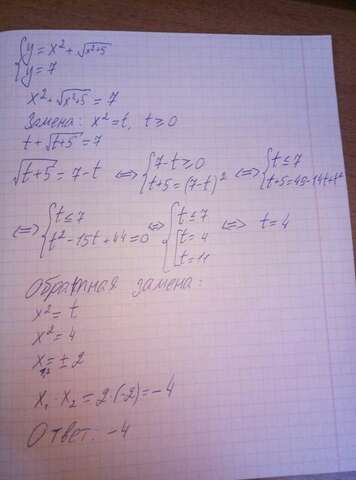 {y = x² + √(x²+5)
{y = 7
x² + √(x²+5) = 7
Замена: x² = t, t ≥ 0
t + √(t+5) = 7
√(t+5) = 7-t ⇔ {7-t ≥ 0 ; t+5 = (7-t)² ⇔ {t ≤ 7 ; t+5 = 49-14t+t²
⇔ {t ≤ 7 ; t² - 15t + 44 = 0 ⇔ {t ≤ 7 ; [t = 4 ; t = 11 ⇔ t = 4
Обратная замена:
x² = t
x² = 4
x₁,₂ = ± 2
x₁ · x₂ = 2 · (-2) = -4
Ответ: -4